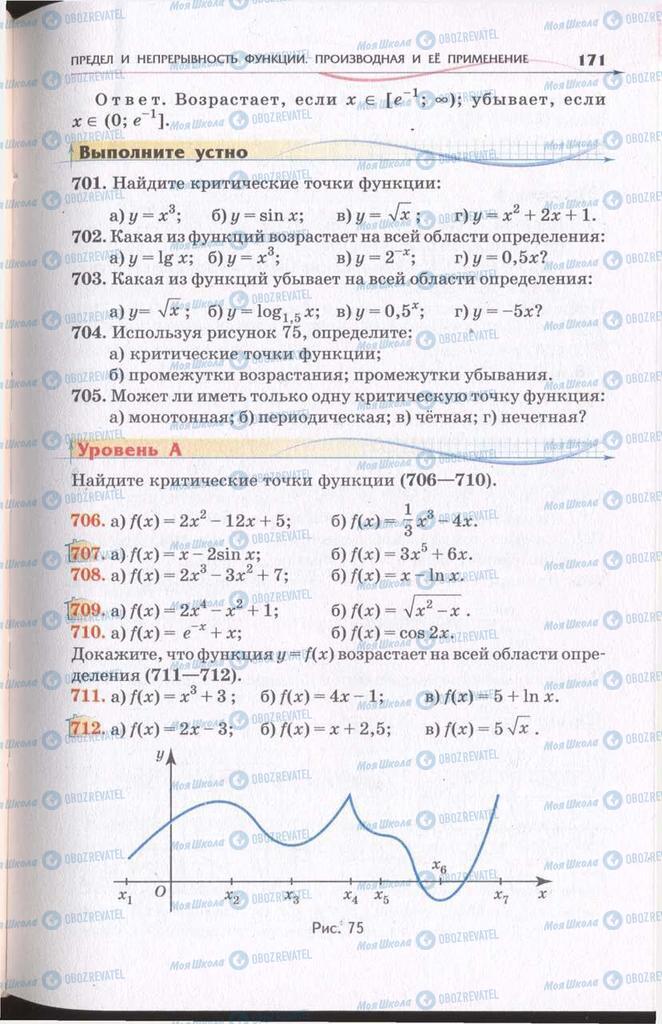 ПРЕДЕЛ И НЕПРЕРЫВНОСТЬ ФУНКЦИИ. ПРОИЗВОДНАЯ И ЕЁ ПРИМЕНЕНИЕ 171
Ответ. Возрастает, если x ∈ [e⁻¹; ∞); убывает, если
x ∈ (0; e⁻¹].
Выполните устно
701. Найдите критические точки функции:
а) y = x³; б) y = sin x; в) y = √x ; г) y = x² + 2x + 1.
702. Какая из функций возрастает на всей области определения:
а) y = lg x; б) y = x³; в) y = 2⁻ˣ; г) y = 0,5x?
703. Какая из функций убывает на всей области определения:
а) y= √x ; б) y = log₁,₅ x; в) y = 0,5ˣ; г) y = −5x?
704. Используя рисунок 75, определите:
а) критические точки функции;
б) промежутки возрастания; промежутки убывания.
705. Может ли иметь только одну критическую точку функция:
а) монотонная; б) периодическая; в) чётная; г) нечетная?
Уровень А
Найдите критические точки функции (706—710).
706. а) f(x) = 2x² − 12x + 5; б) f(x) = 1/3 x³ − 4x.
707. а) f(x) = x − 2sin x; б) f(x) = 3x⁵ + 6x.
708. а) f(x) = 2x³ − 3x² + 7; б) f(x) = x − ln x.
709. а) f(x) = 2x⁴ − x² + 1; б) f(x) = √(x² − x) .
710. а) f(x) = e⁻ˣ + x; б) f(x) = cos 2x.
Докажите, что функция y = f(x) возрастает на всей области опре-
деления (711—712).
711. а) f(x) = x³ + 3 ; б) f(x) = 4x − 1; в) f(x) = 5 + ln x.
712. а) f(x) = 2x − 3; б) f(x) = x + 2,5; в) f(x) = 5√x .
y
x₆
x₁ O x₂ x₃ x₄ x₅ x₇ x
Рис. 75
МояШкола OBOZREVATEL